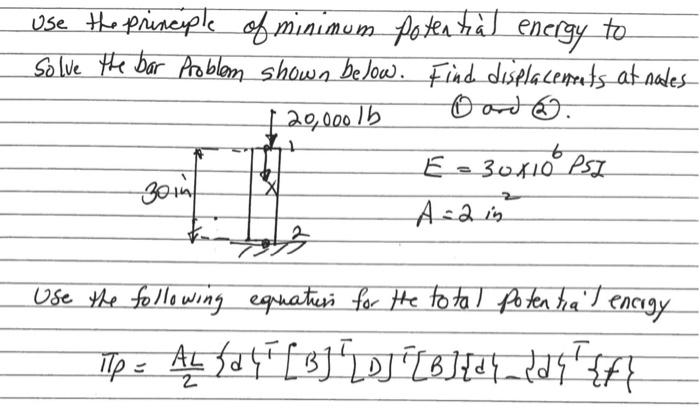 Use the principle of minimum potential energy to
Solve the bar Problem shown below. Find displacements at nodes
① and ②.
20,000 lb
1
E = 30x10⁶ PSI
30 in
x
A = 2 in²
2
Use the following equation for the total potential energy
πp = AL/2 {d}ᵀ [B]ᵀ [D]ᵀ [B]{d} - {d}ᵀ {f}